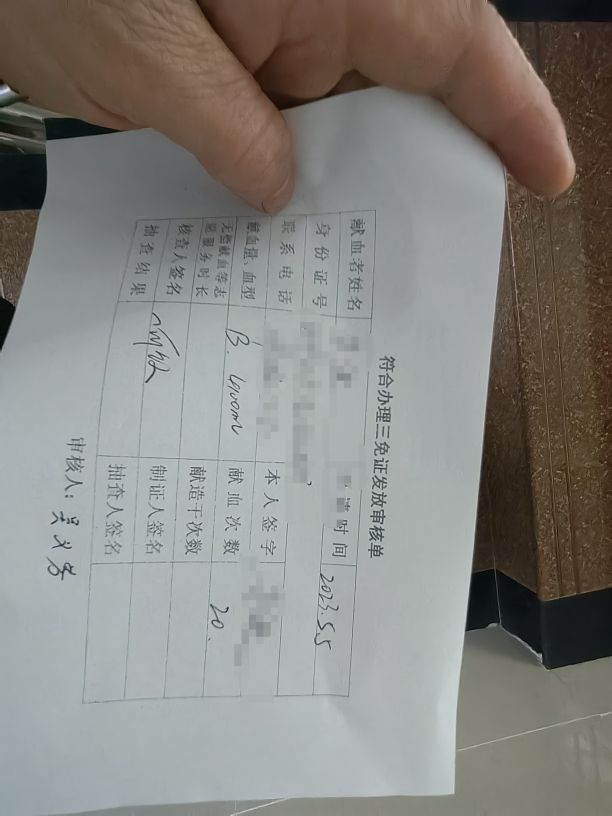 符合办理三免证发放审核单
献血者姓名 时间 2023.5.5
身份证号
联系电话 本人签字
献血量、血型 B. 4900ml 献血次数 20.
无偿献血等志愿服务时长 献造干次数
核查人签名 制证人签名
抽查结果 抽查人签名
审核人：